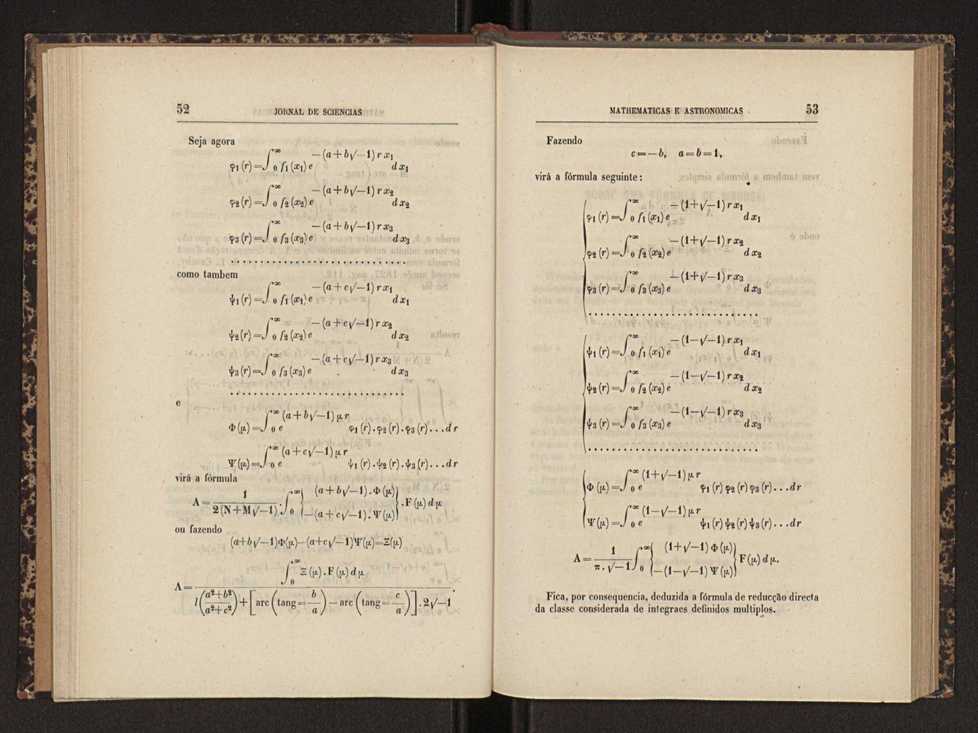 52 JORNAL DE SCIENCIAS
Seja agora
φ₁(r)=∫₀^{+∞} f₁(x₁) e^{−(a+b√−1) r x₁} dx₁
φ₂(r)=∫₀^{+∞} f₂(x₂) e^{−(a+b√−1) r x₂} dx₂
φ₃(r)=∫₀^{+∞} f₃(x₃) e^{−(a+b√−1) r x₃} dx₃
. . . . . . . . . . . . . . . . . . . . . . . . . . . . .
como tambem
ψ₁(r)=∫₀^{+∞} f₁(x₁) e^{−(a+c√−1) r x₁} dx₁
ψ₂(r)=∫₀^{+∞} f₂(x₂) e^{−(a+c√−1) r x₂} dx₂
ψ₃(r)=∫₀^{+∞} f₃(x₃) e^{−(a+c√−1) r x₃} dx₃
. . . . . . . . . . . . . . . . . . . . . . . . . . . . .
e
Φ(μ)=∫₀^{+∞} e^{(a+b√−1) μ r} φ₁(r).φ₂(r).φ₃(r)...dr
Ψ(μ)=∫₀^{+∞} e^{(a+c√−1) μ r} ψ₁(r).ψ₂(r).ψ₃(r)...dr
virá a fórmula
A = 1/(2(N+M√−1)) . ∫₀^{+∞} { (a+b√−1).Φ(μ) −(a+c√−1).Ψ(μ) } . F(μ) dμ
ou fazendo
(a+b√−1)Φ(μ)−(a+c√−1)Ψ(μ)=Ξ(μ)
A = ∫₀^{+∞} Ξ(μ).F(μ) dμ / ( l((a²+b²)/(a²+c²)) + [arc(tang=b/a) − arc(tang=c/a)] . 2√−1 ) .
MATHEMATICAS E ASTRONOMICAS 53
Fazendo
c=−b, a=b=1,
virá a fórmula seguinte:
φ₁(r)=∫₀^{+∞} f₁(x₁) e^{−(1+√−1) r x₁} dx₁
φ₂(r)=∫₀^{+∞} f₂(x₂) e^{−(1+√−1) r x₂} dx₂
φ₃(r)=∫₀^{+∞} f₃(x₃) e^{−(1+√−1) r x₃} dx₃
. . . . . . . . . . . . . . . . . . . . . . . . . . . . .
ψ₁(r)=∫₀^{+∞} f₁(x₁) e^{−(1−√−1) r x₁} dx₁
ψ₂(r)=∫₀^{+∞} f₂(x₂) e^{−(1−√−1) r x₂} dx₂
ψ₃(r)=∫₀^{+∞} f₃(x₃) e^{−(1−√−1) r x₃} dx₃
. . . . . . . . . . . . . . . . . . . . . . . . . . . . .
Φ(μ)=∫₀^{+∞} e^{(1+√−1) μ r} φ₁(r) φ₂(r) φ₃(r)...dr
Ψ(μ)=∫₀^{+∞} e^{(1−√−1) μ r} ψ₁(r) ψ₂(r) ψ₃(r)...dr
A = 1/(π.√−1) ∫₀^{+∞} { (1+√−1) Φ(μ) −(1−√−1) Ψ(μ) } F(μ) dμ.
Fica, por consequencia, deduzida a fórmula de reducção directa
da classe considerada de integraes definidos multiplos.